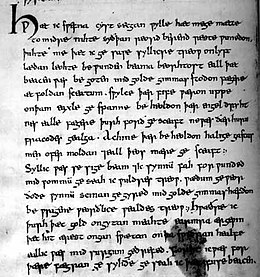 Hwæt ic swefna cyst secgan wylle hwæt me gemætte
to midre nihte syðþan reord berend reste wunedon.
þuhte me þæt ic ge sawe syllicre treow on lyft
lædan leohte be wunden beama beorhtost eall þæt
beacen wæs be goten mid golde gimmas stodon fægere
æt foldan sceatum swylce þær fife wæron uppe
on þam eaxle ge spanne be heoldon þær engel dryht
nes ealle fægere þurh forð ge sceaft ne wæs ðær huru
fracodes gealga ac hine þær be heoldon halige gastas
men ofer moldan ⁊ eall þeos mære ge sceaft.
Syllic wæs se sige beam ⁊ ic synnum fah for wunded
mid wommum ge seah ic wuldres treow wædum ge weor
ðode wynnum scinan ge gyred mid golde gimmas hæfdon
be wrigene weorðlice wealdes treow hwæðre ic
þurh þæt gold ongytan meahte earmra ærgewin
þæt hit ærest ongan swætan on þa swiðran healfe
eall ic wæs mid surgum ge drefed forht ic wæs for
þære fægran ge syhðe ge seah ic þæt fuse